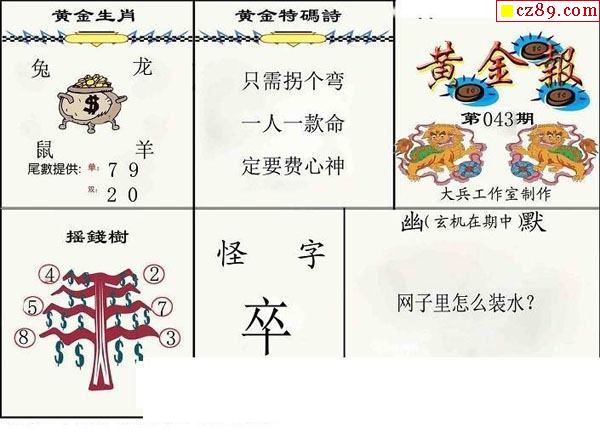 cz89.com
黄金生肖
兔 龙
鼠 羊
尾數提供：单：7 9
双：2 0
黄金特碼詩
只需拐个弯
一人一款命
定要费心神
黄金報
第043期
大兵工作室制作
摇錢樹
④ ②
⑤ ⑦
⑧ ③
怪 字
卒
幽(玄机在期中)默
网子里怎么装水？